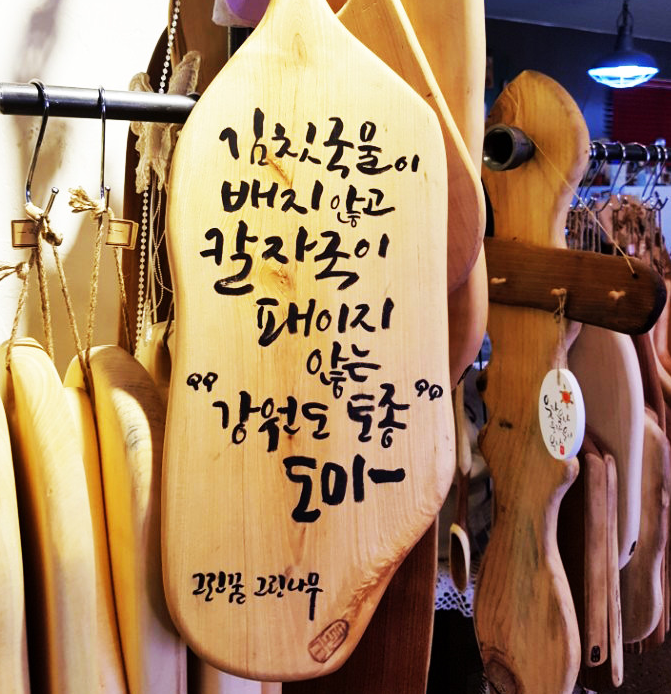 김칫국물이
배지 않고
칼자국이
패이지
않는
"강원도 토종"
도마ー
그린꿈 그린나무